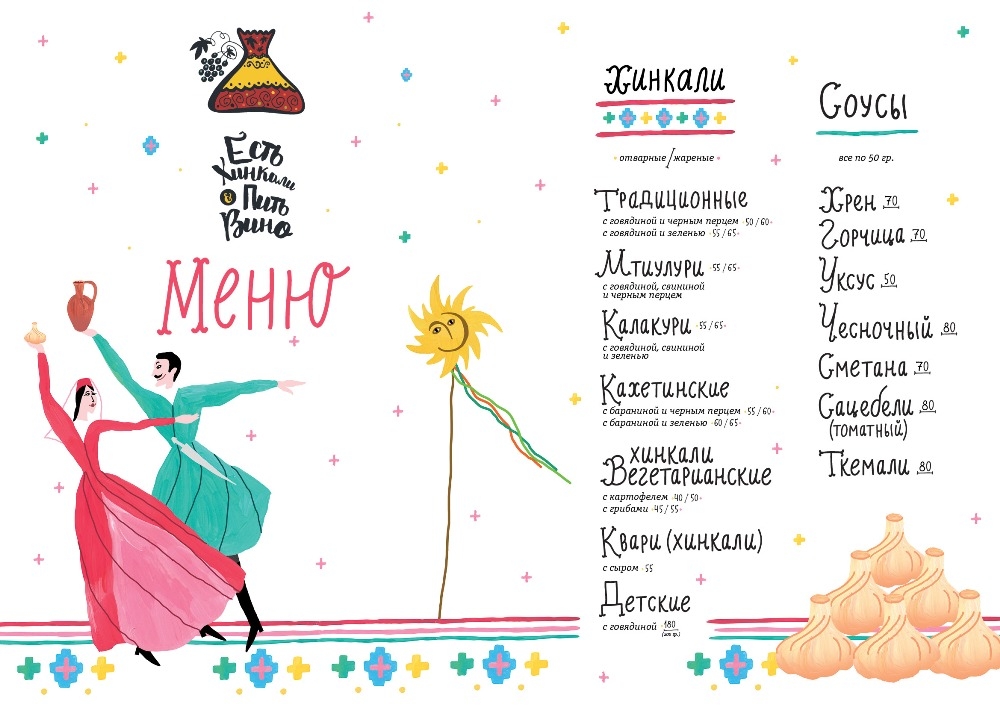 Есть
Хинкали
& Пить
Вино
Меню
Хинкали
отварные/жареные
Традиционные
с говядиной и черным перцем 50 / 60
с говядиной и зеленью 55 / 65
Мтиулури 55 / 65
с говядиной, свининой
и черным перцем
Калакури 55 / 65
с говядиной, свининой
и зеленью
Кахетинские
с бараниной и черным перцем 55 / 60
с бараниной и зеленью 60 / 65
хинкали
Вегетарианские
с картофелем 40 / 50
с грибами 45 / 55
Квари (хинкали)
с сыром 55
Детские
с говядиной 180
Соусы
все по 50 гр.
Хрен 70
Горчица 70
Уксус 50
Чесночный 80
Сметана 70
Сацебели 80
(томатный)
Ткемали 80